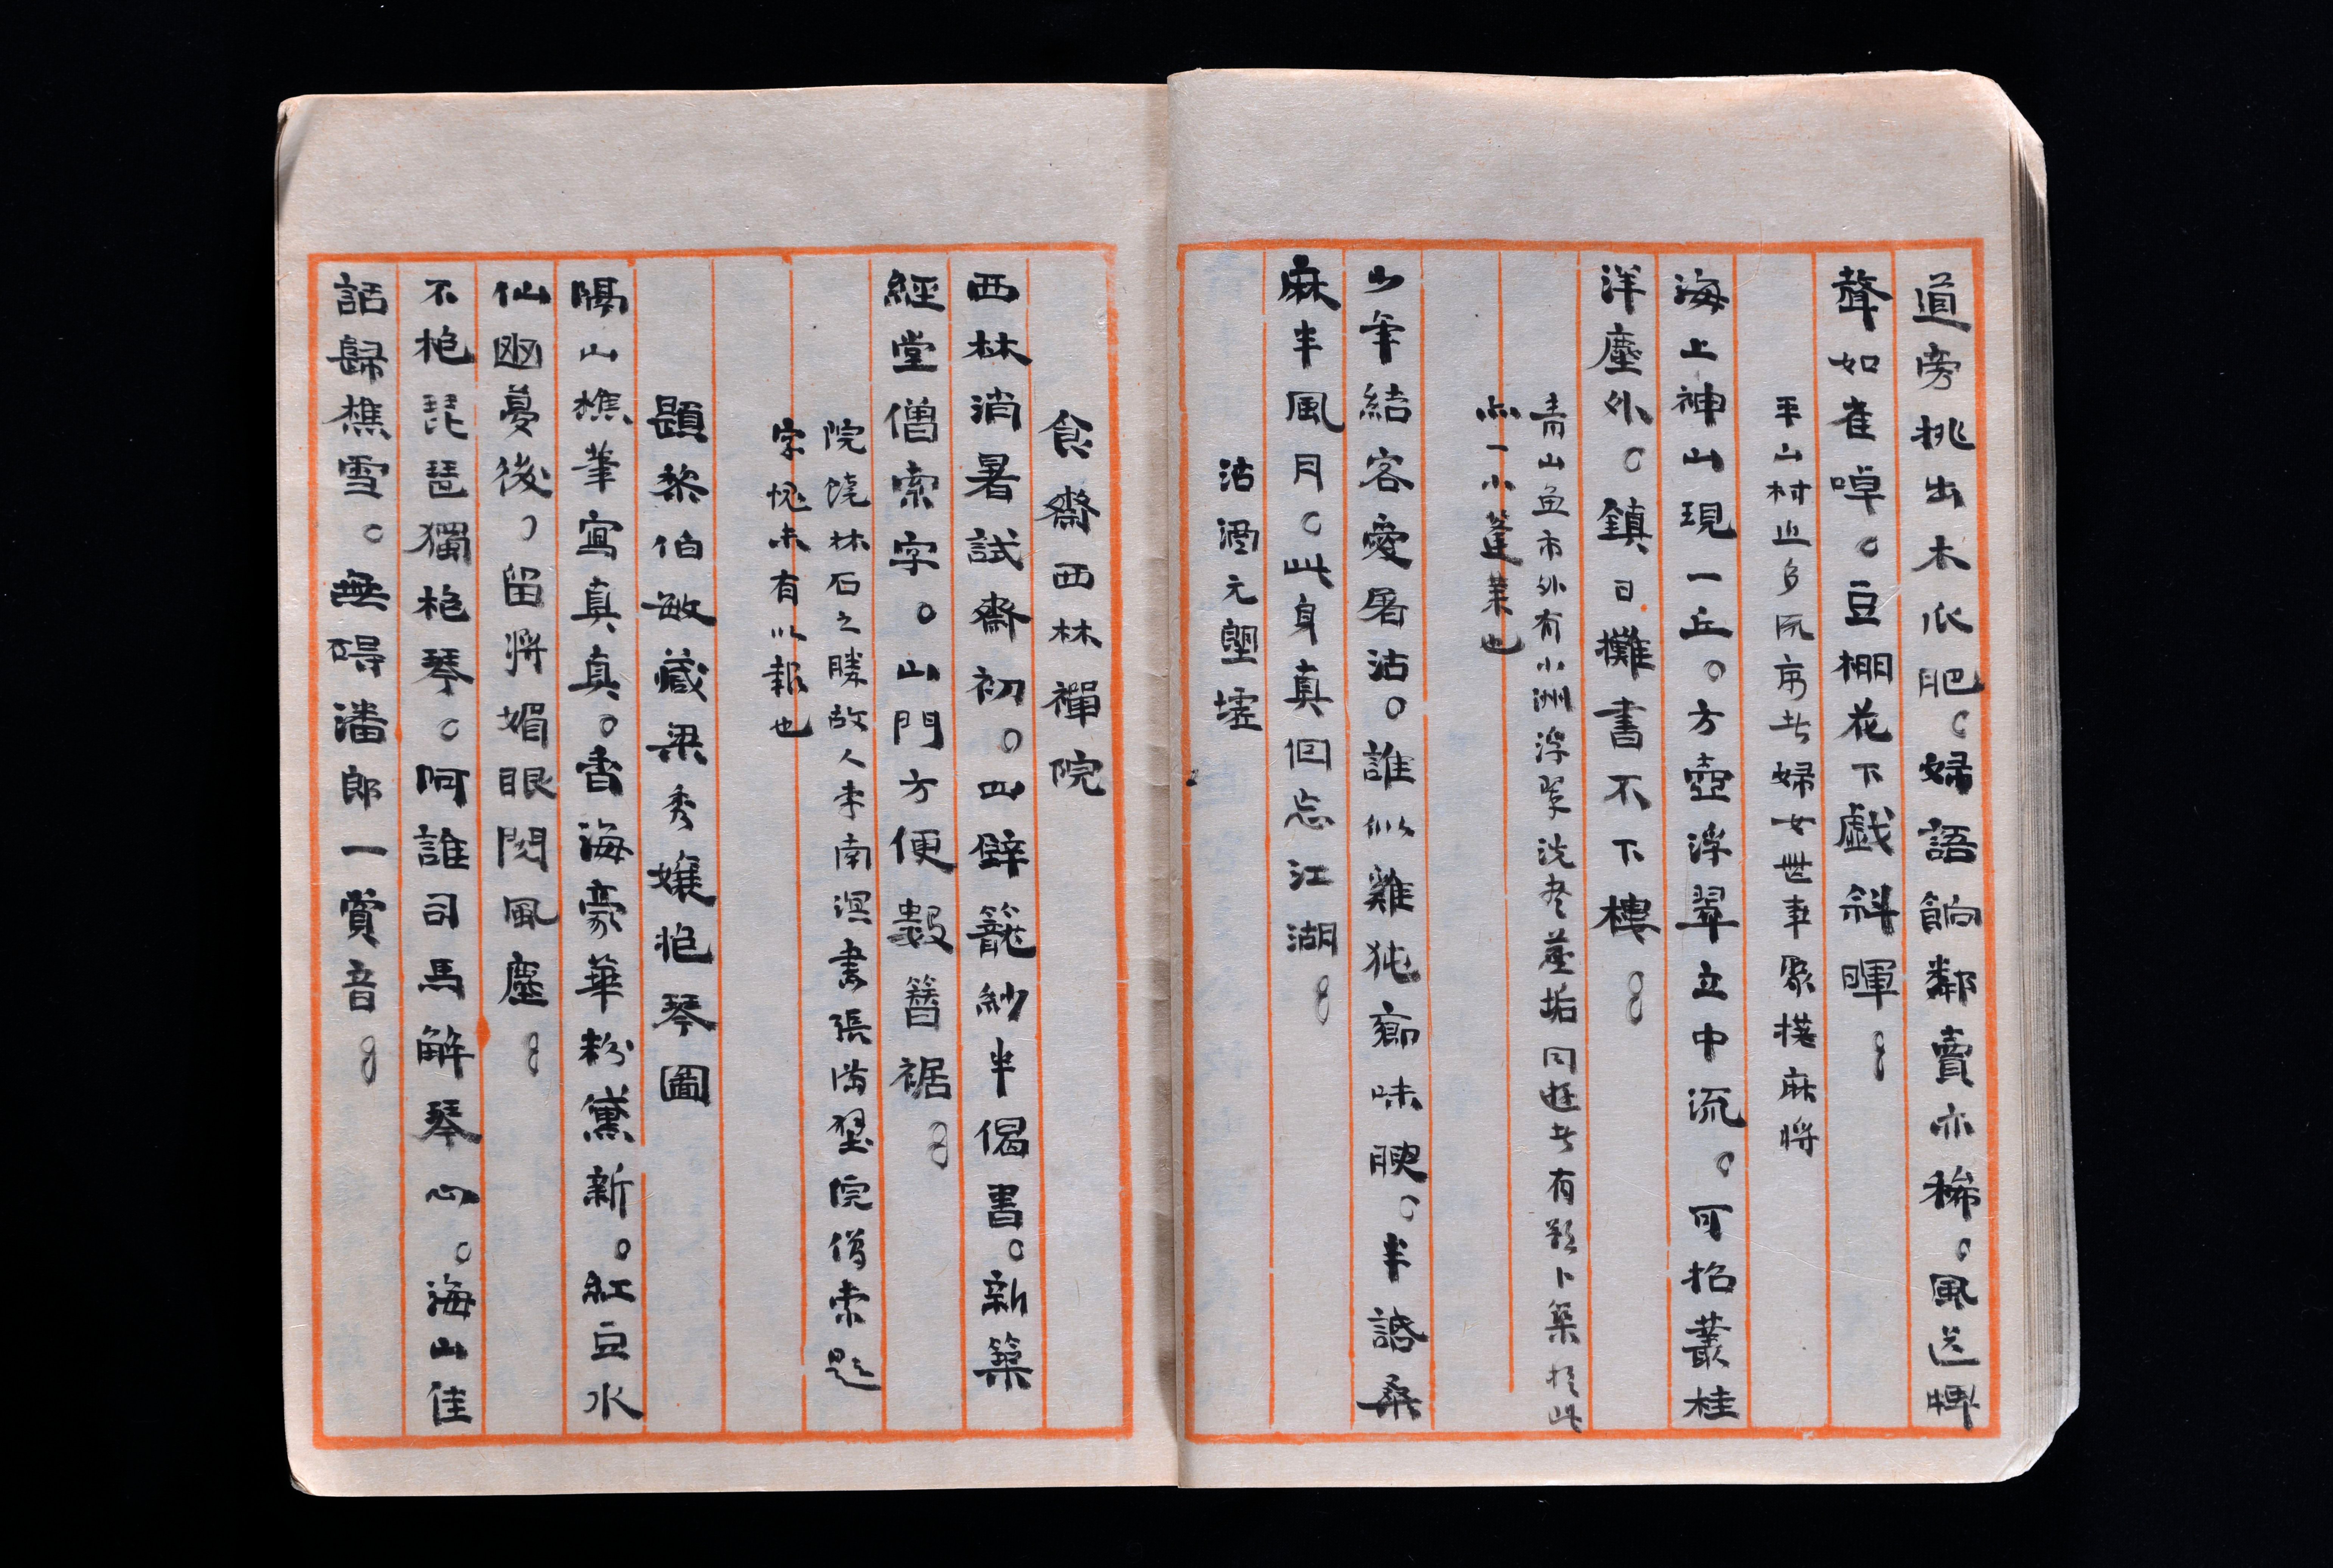 道旁挑出木瓜肥。婦語餉鄰賣亦稀。風送牌
聲如雀噪。豆棚花下戲斜暉
平山村止多所市者婦女無事家搓麻將
海上神山現一丘。方壺浮翠立中流。可招叢桂
洋塵外。鎮日攤書不下樓
青山魚市外有小洲浮翠洗盡塵垢同遊者有議卜築於此
亦一小蓬萊也
少年結客愛屠沽。誰似雞㹠鄉味腴。半話桑
麻半風月。此身真個忘江湖
沽酒元朗墟
食齋西林禪院
西林消暑試齋初。四壁籠紗半偈書。新築
經堂僧索字。山門方便數簪裾
院饒林石之勝故人李南溟書張滿壁院僧索題
字愧未有以報也
題黎伯敏藏梁秀娘抱琴圖
隔山樵筆寫真真。香海豪華粉黛新。紅豆水
仙幽夢後。留將媚眼閱風塵
不抱琵琶獨抱琴。阿誰司馬解琴心。海山佳
話歸樵雪。無礙潘郎一賞音